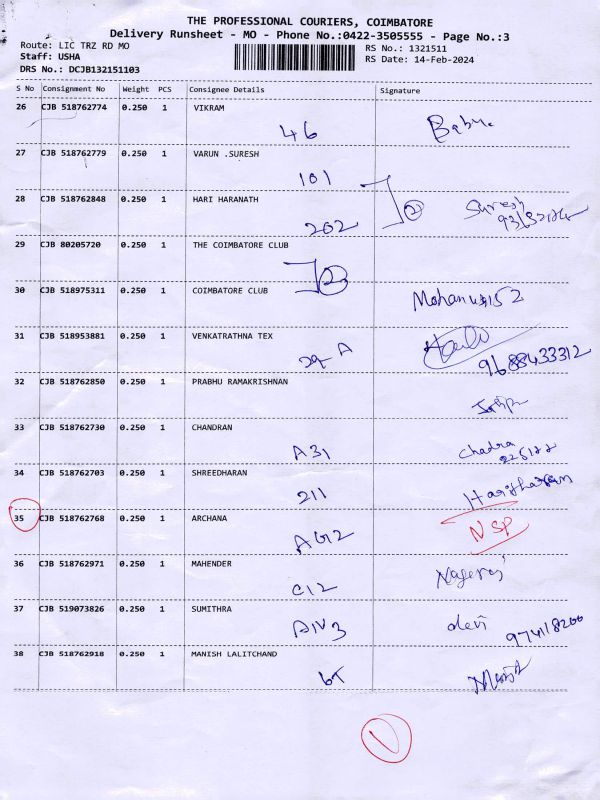 THE PROFESSIONAL COURIERS, COIMBATORE
Delivery Runsheet - MO - Phone No.:0422-3505555 - Page No.:3
Route: LIC TRZ RD MO RS No.: 1321511
Staff: USHA RS Date: 14-Feb-2024
DRS No.: DCJB132151103
S No Consignment No Weight PCS Consignee Details Signature
26 CJB 518762774 0.250 1 VIKRAM
46 Babu
27 CJB 518762779 0.250 1 VARUN .SURESH
101
28 CJB 518762848 0.250 1 HARI HARANATH
202 Suresh
29 CJB 80205720 0.250 1 THE COIMBATORE CLUB
30 CJB 518975311 0.250 1 COIMBATORE CLUB
Mohan
31 CJB 518953881 0.250 1 VENKATRATHNA TEX
29 A 9688433312
32 CJB 518762850 0.250 1 PRABHU RAMAKRISHNAN
33 CJB 518762730 0.250 1 CHANDRAN
A31 Chadra
34 CJB 518762703 0.250 1 SHREEDHARAN
211 Haritharan
35 CJB 518762768 0.250 1 ARCHANA
NSP
36 CJB 518762971 0.250 1 MAHENDER
C12 Nageraj
37 CJB 519073826 0.250 1 SUMITHRA
devi
38 CJB 518762918 0.250 1 MANISH LALITCHAND